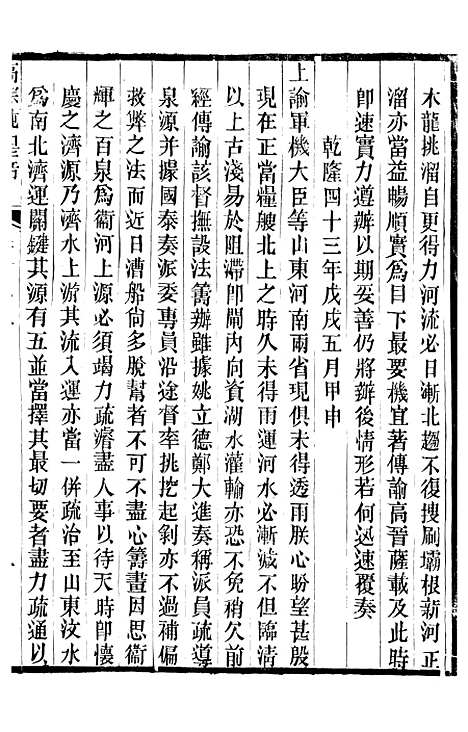 木龍挑溜自更得力河流必日漸北趨不復搜刷壩根新河正
溜亦當益暢順實爲目下最要機宜著傳諭高晉薩載及此時
卽速實力遵辦以期妥善仍將辦後情形若何迅速覆奏
乾隆四十三年戊戌五月甲申
上諭軍機大臣等山東河南兩省現俱未得透雨朕心盼望甚殷
現在正當糧艘北上之時久未得雨運河水必漸減不但臨清
以上古淺易於阻滯卽閘內向資湖水灌輸亦恐不免稍欠前
經傳諭該督撫設法籌辦雖據姚立德鄭大進奏稱派員疏導
泉源并據國泰奏派委專員沿途督率挑挖起剝亦不過補偏
救弊之法而近日漕船尙多脫幫者不可不盡心籌畫因思衞
輝之百泉爲衞河上源必須竭力疏濬盡人事以待天時卽懷
慶之濟源乃濟水上游其流入運亦當一併疏治至山東汶水
爲南北濟運關鍵其源有五並當擇其最切要者盡力疏通以
高宗純皇帝